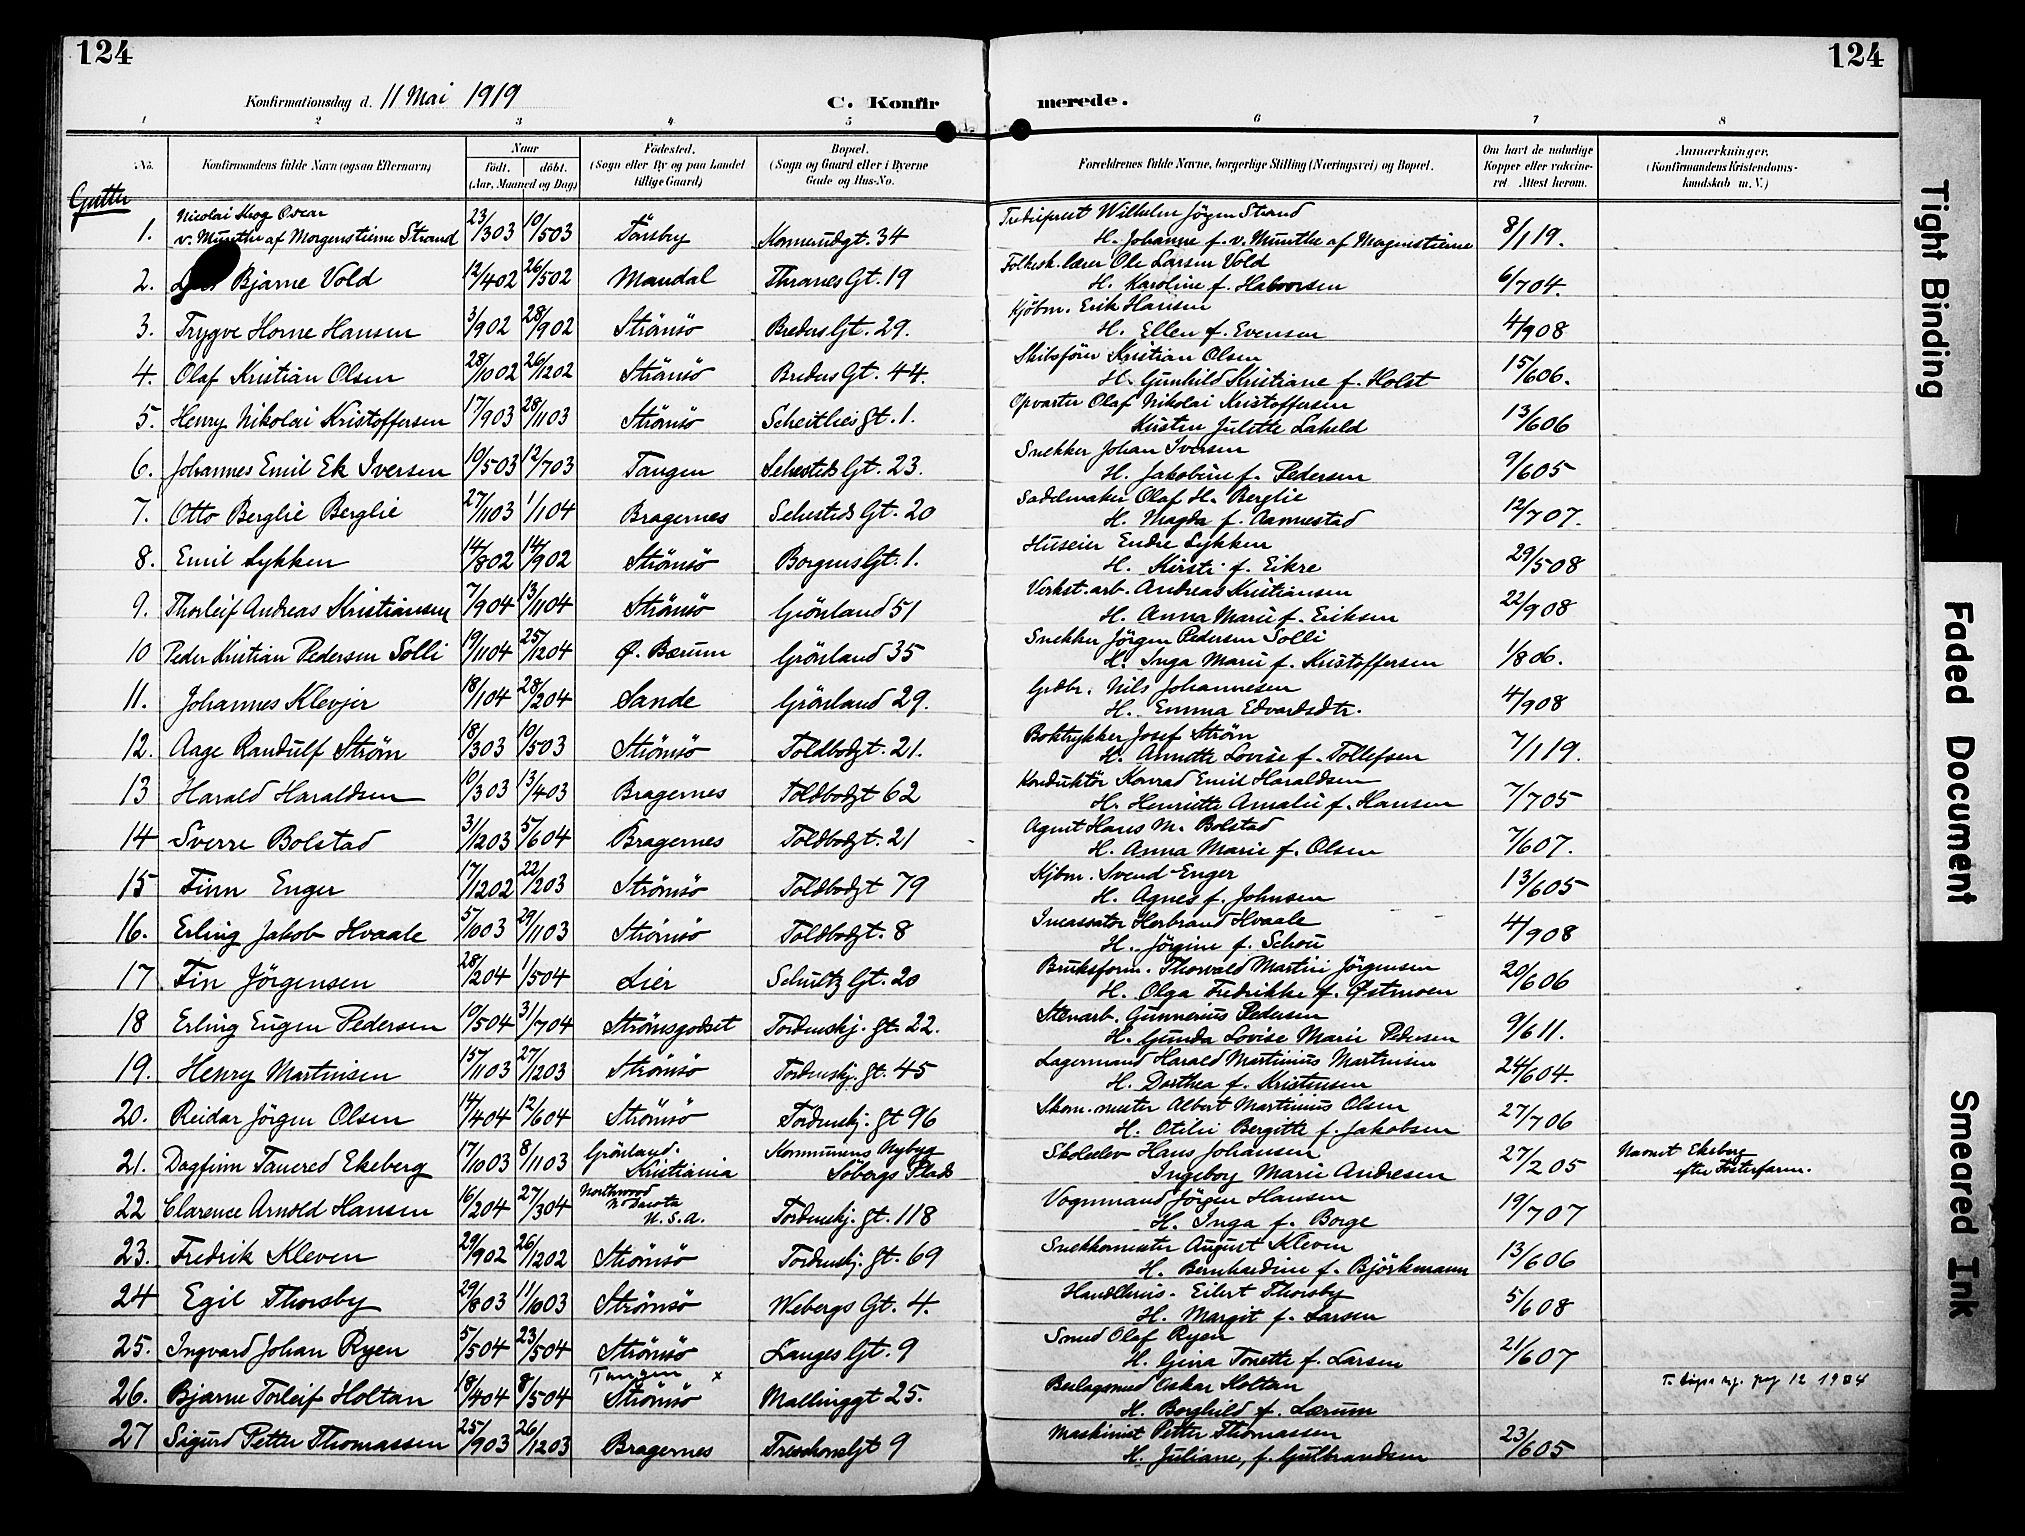 124
124
Konfirmationsdag d. 11 Mai 1919
C. Konfir
merede.
1 2 3 4 5 6 7 8
No.
Konfirmandens fulde Navn (ogsaa Efternavn)
Naar
født. døbt.
(Aar, Maaned og Dag)
Födested.
(Sogn eller By og paa Landet
tillige Gaard)
Bopæl.
(Sogn og Gaard eller i Byerne
Gade og Hus-No.
Forældrenes fulde Navne, borgerlige Stilling (Næringsvei) og Bopæl.
Om havt de naturlige
Kopper eller vakcine-
ret. Attest herom.
Anmærkninger.
(Konfirmandens Kristendoms-
kundskab m. V.)
Gutter
Nicolai Skog Oscar
1. v. Munthe af Morgenstierne Strand 23/303 10/503 Tönsby Konnerudgt. 34
Trediepræst Wilhelm Jörgen Strand
H. Johanne f. v. Munthe af Morgenstierne 8/119.
2. Bjarne Vold 12/402 26/502 Mandal Thranes Gt. 19
Folkesk. lærer Ole Larsen Vold
H. Karoline f. Halvorsen 6/704.
3. Trygve Horne Hansen 3/902 28/902 Strömsö Breders Gt. 29.
Kjöbm. Erik Hansen
H. Ellen f. Evensen 4/908
4. Olaf Kristian Olsen 28/1002 26/1202 Strömsö Breders Gt. 44.
Skibsförer Kristian Olsen
H. Gunhild Kristiane f. Holst 15/606.
5. Henry Nikolai Kristoffersen 17/903 28/1103 Strömsö Scheitlies gt. 1.
Opvarter Olaf Nikolai Kristoffersen
Kristen Julette Lakeld 13/606
6. Johannes Emil Ek Iversen 10/503 12/703 Tangen Sehesteds Gt. 23.
Snekker Johan Iversen
H. Jakobine f. Pedersen 9/605
7. Otto Berglie Berglie 27/1103 1/104 Bragernes Sehesteds Gt. 20
Sadelmaker Olaf H. Berglie
H. Magda f. Aannestad 12/707.
8. Emil Lykken 14/802 14/902 Strömsö Borgens Gt. 1.
Huseier Endre Lykken
H. Kirsti f. Eikre 29/508
9. Thorleif Andreas Kristiansen 7/904 13/1104 Strömsö Grönland 51
Verkst. arb. Andreas Kristiansen
H. Anna Marie f. Eriksen 22/908
10 Peder Kristian Pedersen Solli 19/1104 25/1204 Ø. Bærum Grönland 35
Snekker Jörgen Pedersen Solli
H. Inga Marie f. Kristoffersen 1/806.
11. Johannes Klevjer 18/104 28/204 Sande Grönland 29.
Grdbr. Nils Johannesen
H. Emma Edvardsdtr. 4/908
12. Aage Randulf Ström 18/303 10/503 Strömsö Toldbodgt. 21.
Boktrykker Josef Ström
H. Annette Lovise f. Tollefsen 7/119.
13 Harald Haraldsen 10/303 13/403 Bragernes Toldbodgt 62
Konduktör Konrad Emil Haraldsen
H. Henriette Amalie f. Hansen 7/705
14 Sverre Bolstad 31/1203 5/604 Bragernes Toldbodgt. 21
Agent Hans M. Bolstad
H. Anna Marie f. Olsen 7/607.
15 Finn Enger 17/1202 22/203 Strömsö Toldbodgt 79
Kjbm. Svend Enger
H. Agnes f. Johnsen 13/605
16. Erling Jakob Hvaale 5/1003 29/1103 Strömsö Toldbodgt. 8
Incassator Herbrand Hvaale
H. Jörgine f. Schou 4/908
17 Fin Jörgensen 28/204 1/504 Lier Schultz Gt. 20
Bruksform. Thorvald Martin Jörgensen
H. Olga Fredrikke f. Østmoen 20/606
18 Erling Eugen Pedersen 10/504 31/704 Strömsgodset Tordenskj. gt. 22.
Stenarb. Gunnerius Pedersen
H. Gunda Lovise Marie Pedersen 9/611.
19. Henry Martinsen 15/1103 27/1203 Strömsö Tordenskj. gt. 45
Lagermand Harald Martinius Martinsen
H. Dorthea f. Kristensen 24/604.
20. Reidar Jörgen Olsen 14/404 12/604 Strömsö Tordenskj. gt 96
Skom. mester Albert Martinius Olsen
H. Otilie Bergitte f. Jakobsen 27/706
21. Dagfinn Tancred Ekeberg 17/1003 8/1103 Grönland. Kristiania Kommunens Nybyg Söbergs Plads
Skoleelev Hans Johansen
Ingeborg Marie Andresen 27/205 Navnet Ekeberg
efter Fosterfaren.
22 Clarence Arnold Hansen 16/204 27/304 Northwood N. Dacota U.S.A. Tordenskj. gt. 118
Vognmand Jörgen Hansen
H. Inga f. Borge 19/707
23. Fredrik Kleven 29/902 26/1202 Strömsö Tordenskj. gt. 69
Snekkermester August Kleven
H. Bernhardine f. Björkmann 13/606
24 Egil Thorsby 29/803 11/1003 Strömsö Webergs Gt. 4.
Handelsreis. Eilert Thorsby
H. Margit f. Larsen 5/608
25. Ingvard Johan Ryen 5/504 23/504 Strömsö Langes Gt. 9
Smed Olaf Ryen
H. Gina Tonette f. Larsen 21/607
Tangen x
26. Bjarne Torleif Holtan 18/404 8/504 Strömsö Mallinggt 25.
Beslagsmed Oskar Holtan
H. Borghild f. Lærum 12 1904
27 Sigurd Petter Thomassen 25/903 26/1203 Bragernes Treschows Gt 9
Maskinist Petter Thomassen
H. Juliane, f. Gulbrandsen 23/605
Tight Binding
Faded Document
Smeared Ink